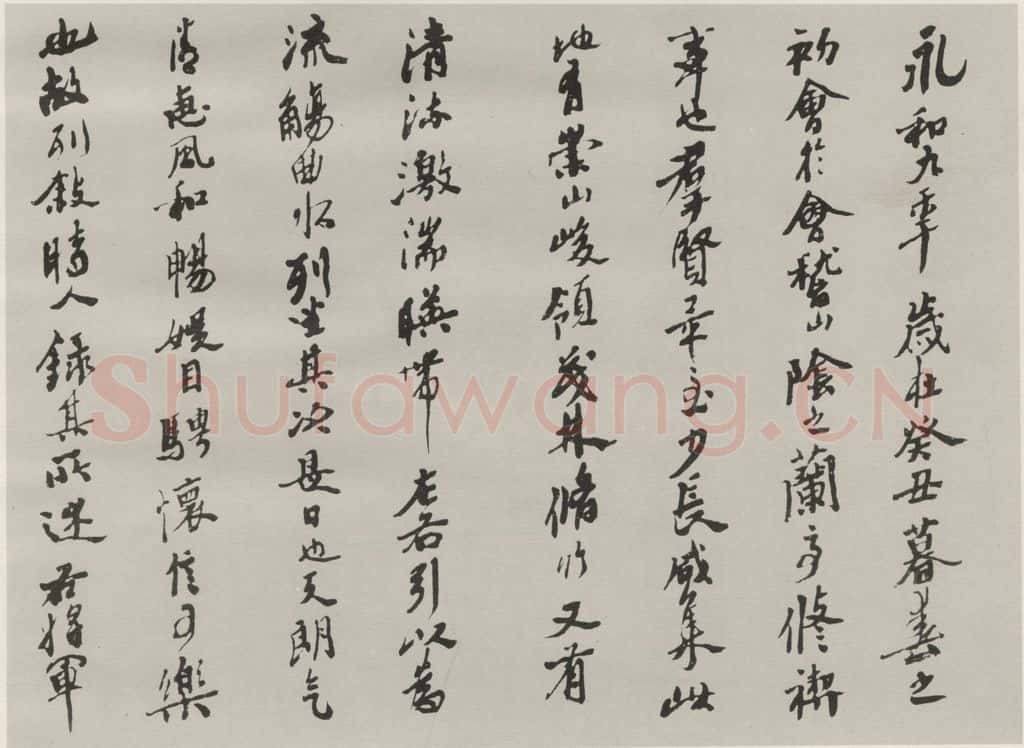 永和九年歲在癸丑暮春之
初會於會稽山陰之蘭亭修禊
事也羣賢畢至少長咸集此
地有崇山峻領茂林脩竹又有
清流激湍暎帶左右引以為
流觴曲水列坐其次是日也天朗气
清惠風和暢娛目騁懷信可樂
也故列敘時人錄其所述右將軍
Shufawang.CN